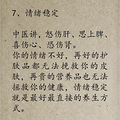 7、情绪稳定
中医讲，怒伤肝、思上脾、
喜伤心、恐伤肾。
你的情绪不好，再好的护
肤品都无法挽救你的皮
肤，再贵的营养品也无法
摇救你的健康，情绪稳定
就是最好最直接的养生方
式。